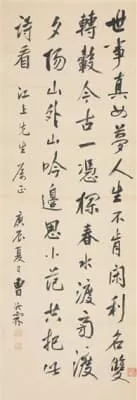 世事真如夢人生不肯閑利名雙
轉轂今古一憑欄春水渡旁渡
夕陽山外山吟邊思小范共把此
詩看 江上先生屬正
庚辰夏日曹汝霖